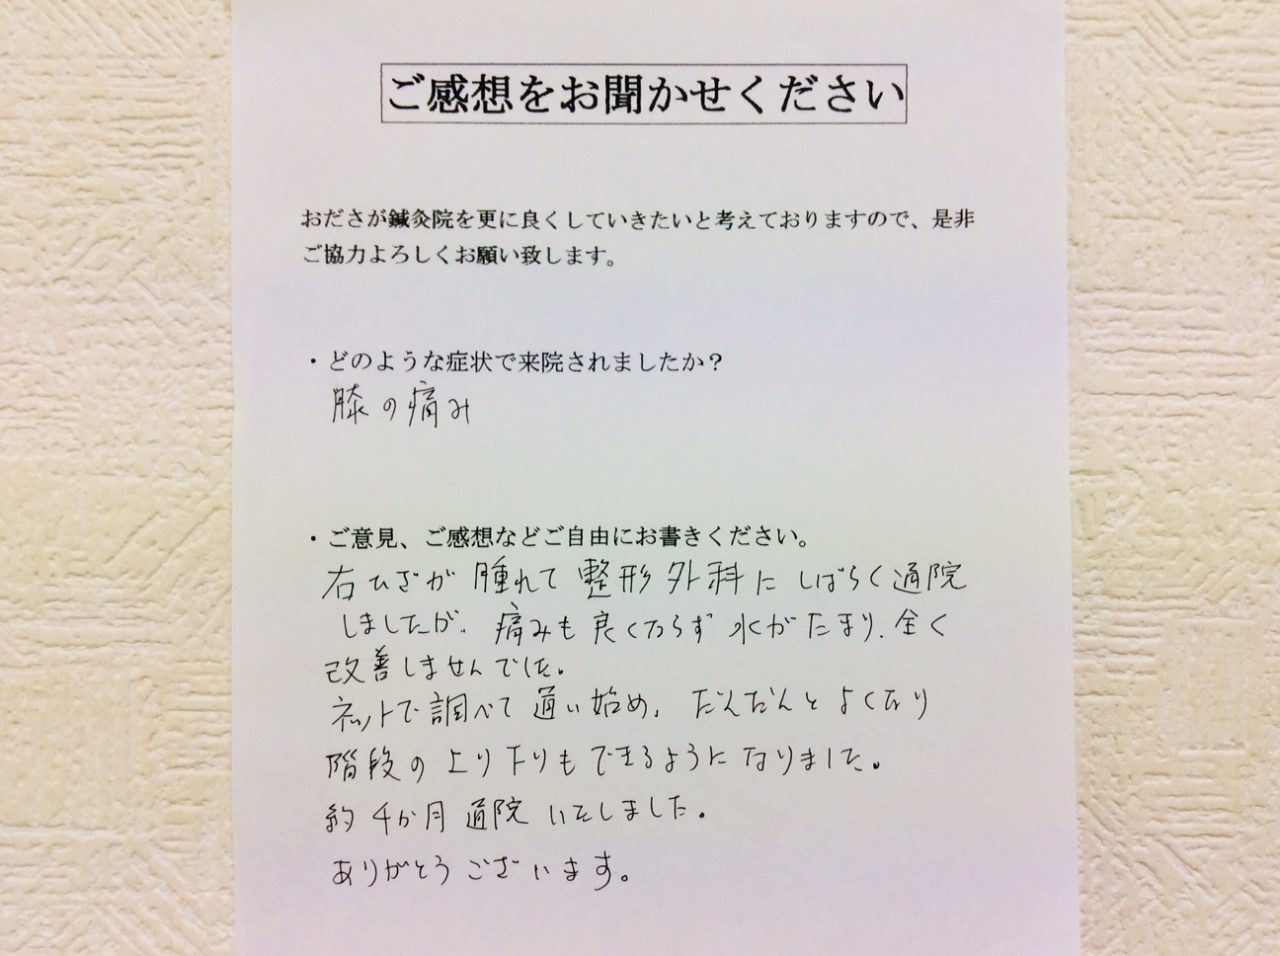 ご感想をお聞かせください
おださが鍼灸院を更に良くしていきたいと考えておりますので、是非
ご協力よろしくお願い致します。
・どのような症状で来院されましたか？
膝の痛み
・ご意見、ご感想などご自由にお書きください。
右ひざが腫れて整形外科にしばらく通院
しましたが、痛みも良くならず水がたまり、全く
改善しませんでした。
ネットで調べて通い始め、だんだんとよくなり
階段の上り下りもできるようになりました。
約4か月通院いたしました。
ありがとうございます。